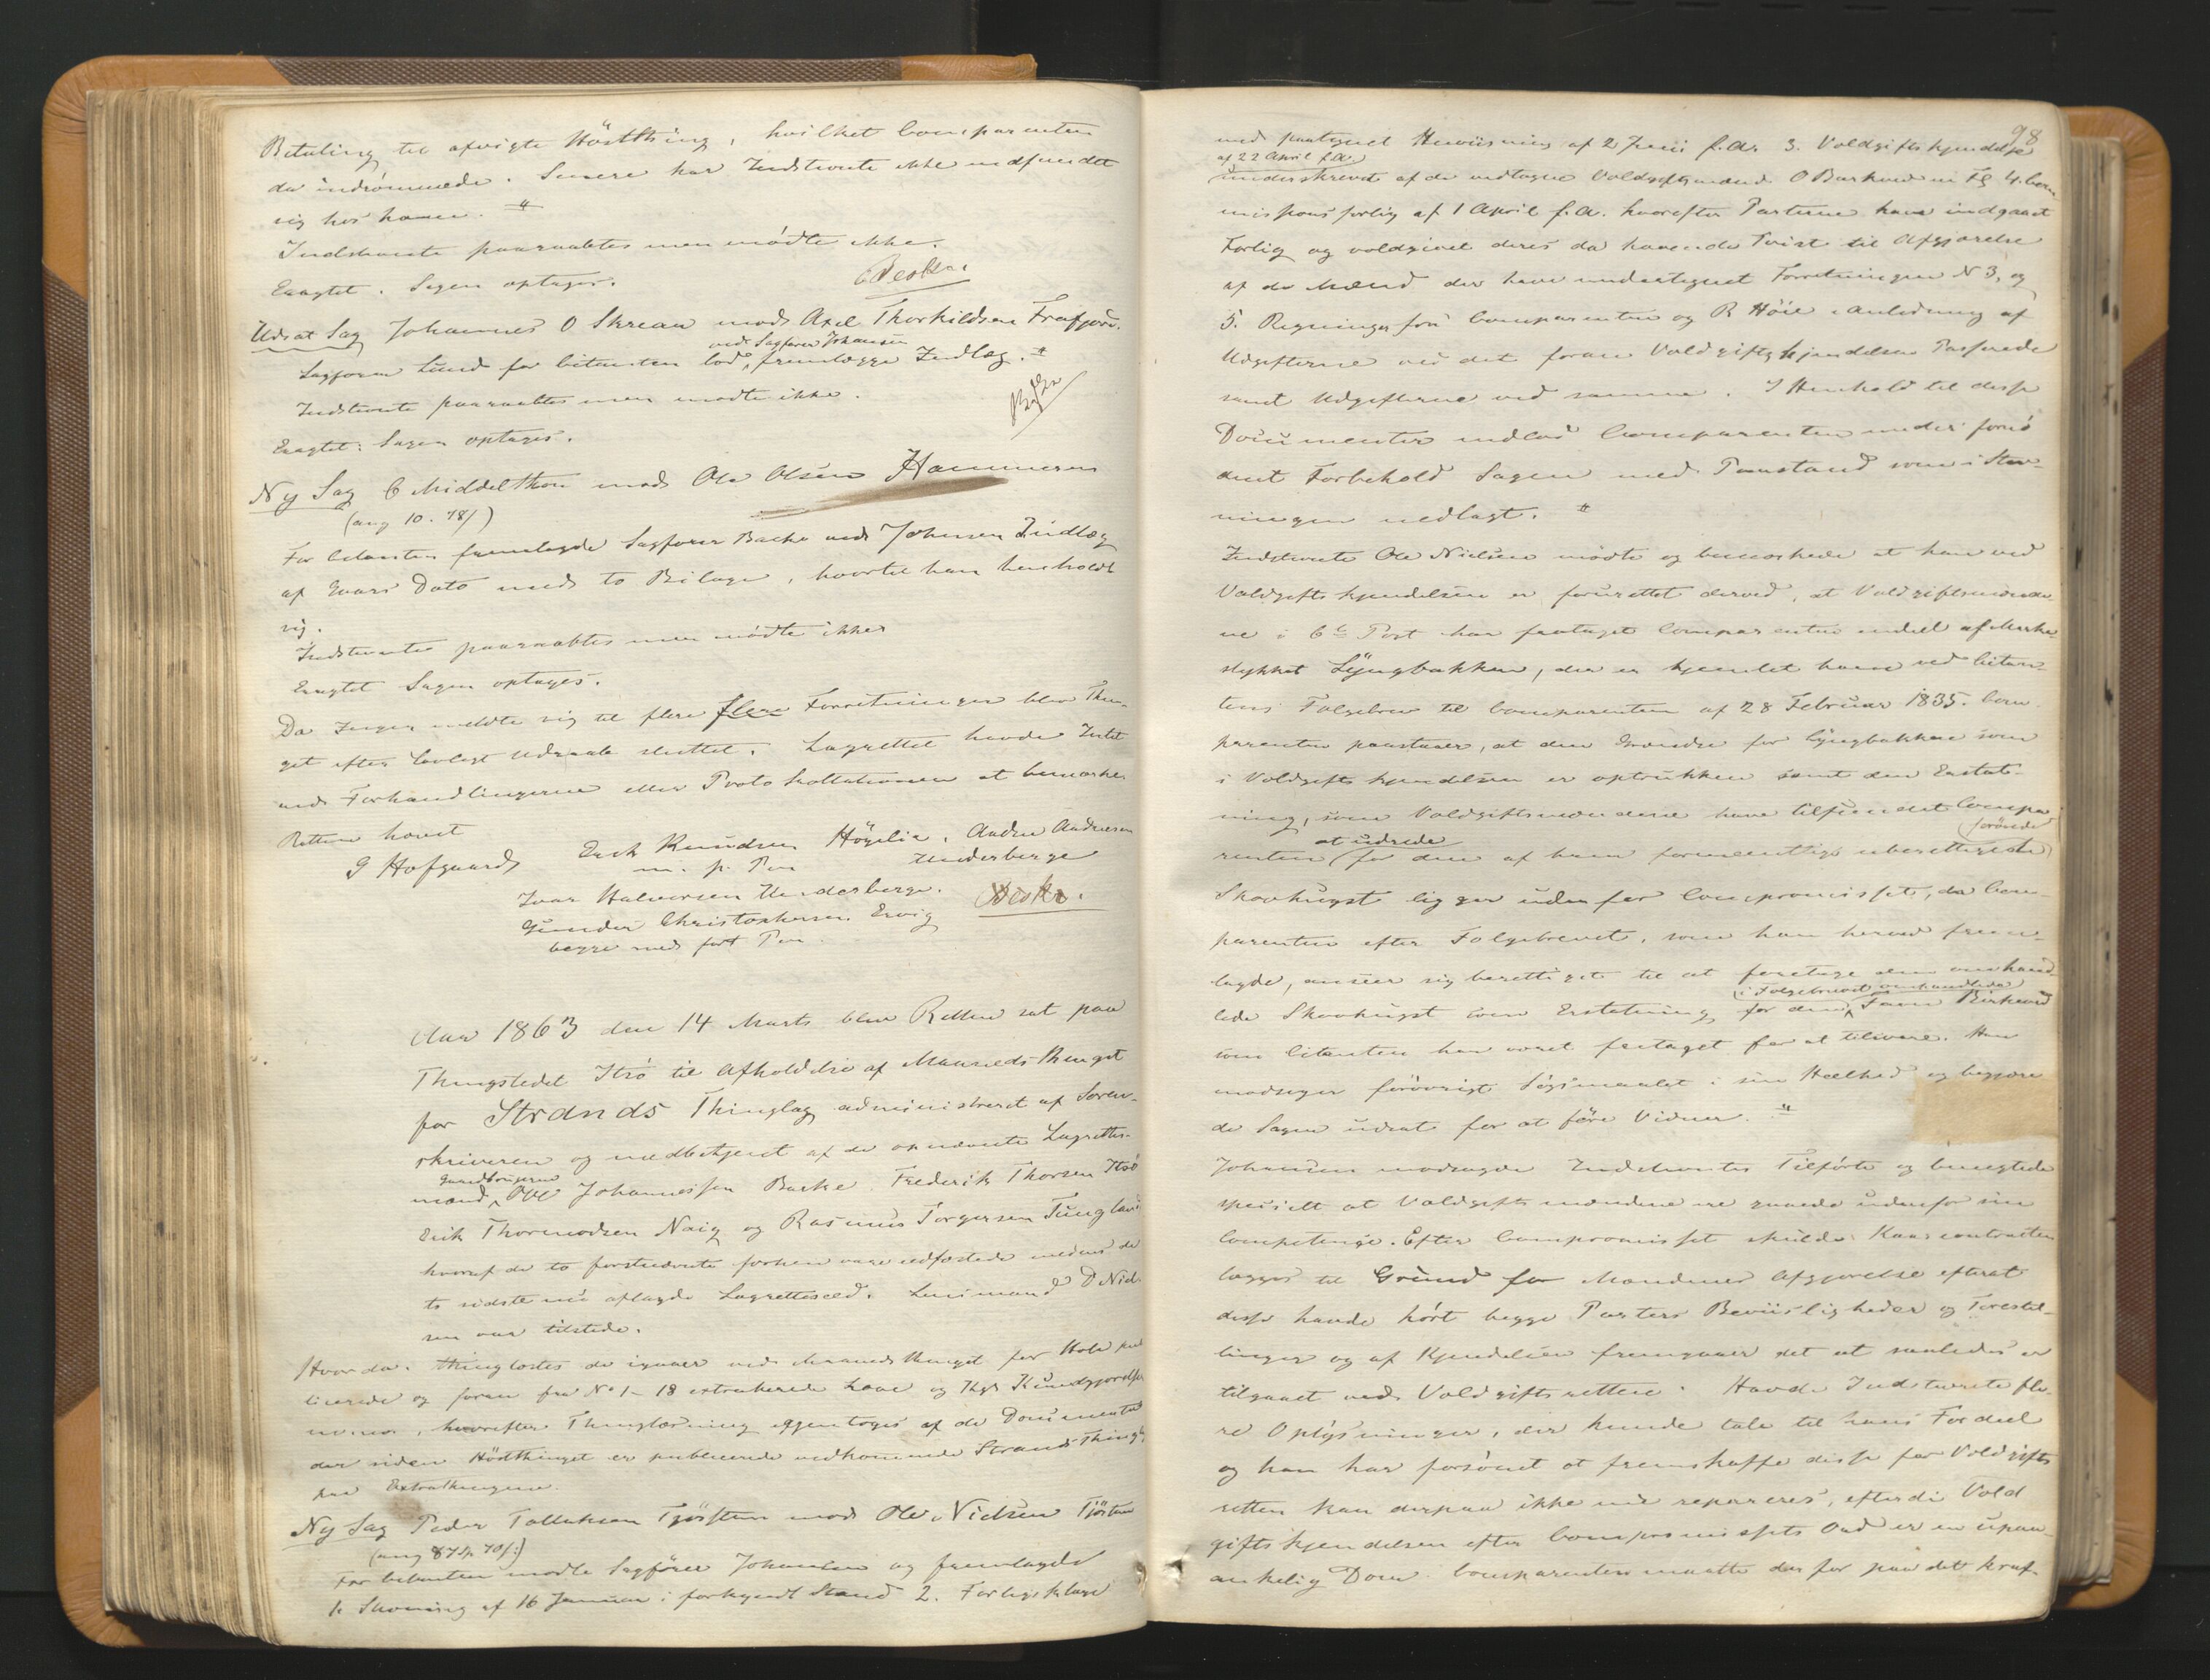 Betaling til afvigte Hösthing, hvilket Comparenten
da indrömmede. Senere har Indstevnte ikke indfundet
sig hos ham. "
Indstevnte paaraabtes men mödte ikke.
Eragtet. Sagen optages.
Udsat Sag Johannes O Skreaa mod Axel Thorkildsen Frafjord.
ved Sagförer Johansen
Sagförer Lund for Citanten lod fremlægge Indlæg. "
Indstevnte paaraabtes men mödte ikke.
Eragtet: Sagen optages.
Ny Sag C Middelthon mod Ole Olsen Hammeren
(ang 10. 78/)
For Citanten fremlagde Sagförer Backe ved Johnsen Indlæg
af Gaars Dato med to Bilage, hvortil han henholdt
sig.
Indstevnte paaraabtes men mödte ikke
Eragtet Sagen optages.
Da Ingen meldte sig til flere flere Forretninger blev Thin-
get efter lovligt Udraab sluttet. Lagrettet havde Intet
ved Forhandlingerne eller Protokollationen at bemærke
Retten hævet
G Hofgaard
Erik Knudsen Högelie. Andre Andersen
m. p. Pen Underberge
Ivar Halvorsen Underberge.
Gunder Christophersen Ervig
begge med fört Pen.
Aar 1863 den 14 Marts blev Retten sat paa
Thingstedet Itsö til Afholdelse af Maanedsthinget
for Strands Thinglag administreret af Soren-
skriveren og medbetjent af de opnævnte Lagrettes-
Gaardbrugerne
mænd, Ole Johannessen Barke Frederik Thorsen Itsö
Erik Thormodsen Naig og Rasmus Torgersen Tungland
hvoraf de to förstnævnte forhen vare edfæstede medens de
to sidste nu aflagde Lagretteseed. Lensmand D Niel-
sen var tilstede.
Hvorda. thinglæstes de igaar ved Maanedsthinget for Hole pub
licerede og foran fra No 1-18 extraherede Love og Kgl Kundgjörelser
hvorefter Thinglæsning gjentoges af de Documenter
der siden Hösthinget er publicerede vedkommende Strands Thinglag
paa Extrathingene.
Ny Sag Peder Tolleksen Tjösten mod Ole Nielsen Tjösten
(ang 87 Sp 70/:)
For Citanten mödte Sagförer Johansen og fremlagde
1. Stevning af 16 Januar i forkyndt Stand 2. Forligsklage
98
med paategnet Henviisning af 2 Juni f.A. 3. Voldgiftskjendelse
af 22 April f.A.
underskrevet af de vedtagne Voldgiftsmænd O Barkved m Fl 4. Com
missions forlig af 1 April f.A. hvorefter Parterne have indgaaet
Forlig og voldgivet deres da havende Tvist til Afgjörelse
af de Mænd der have undertegnet Forretningen N 3, og
5. Regninger fra Comparenten og R Höie i Anledning af
Udgifterne ved det foran Voldgiftskjendelsen Passerede
samt Udgifterne ved samme. I Henhold til disse
Documenter indlod Comparenten under fornö
dent Forbehold Sagen med Paastand som i Stev-
ningen nedlagt. "
Indstevnte Ole Nielsen mödte og bemærkede at han ved
Voldgiftskjendelsen er forurettet derved, at Voldgiftsmænde-
ne i 6te Post har frataget Comparenten endeel af Marke
stykket Lyngbakken, der er hjemlet ham ved Citan-
tens Fölgebrev til Comparenten af 28 Februar 1835. Com
parenten paastaaer, at den Grændse for Lyngbakken som
i Voldgiftskjendelsen er optrukken samt den Erstat-
ning, som Voldgiftsmændene have tilfundet Compa
at udrede
renten for den af ham formeentlig uberettigede
forövede
Skovhugst ligger uden for Compromisset, da Com-
parenten efter Fölgebrevet, som han herved frem-
lagde, anseer sig berettiget til at foretage den omhand
i Fölgebrevet omhandlede
lede Skovhugst som Erstatning for den Favn Birkeved
som Citanten har været fritaget for at tilsvare. Han
modsiger forövrigt Sögsmaalet i sin Heelhed og begjære
de Sagen udsat for at före Vidner. "
Johansen modsagde Indstevntes Tilförte og benegtede
specielt at Voldgiftsmændene ere gaaede udenfor sin
Competence. Efter Compromisset skulde Kaarcontracten
lægges til Grund for Mændenes Afgjörelse efterat
disse havde hört begge Parters Beviisligheder og Forestil-
linger og af Kjendelsen fremgaaer det at saaledes er
tilgaaet ved Voldgiftsretten. Havde Indstevnte fle-
re Oplysninger, der kunde tale til hans Fordeel
og han har forsömt at fremskaffe disse for Voldgifts
retten kan derpaa ikke nu repareres, efterdi Vold
giftskjendelsen efter Compromissets Ord er en upaa-
ankelig Dom. Comparenten maatte derfor paa det kraf-